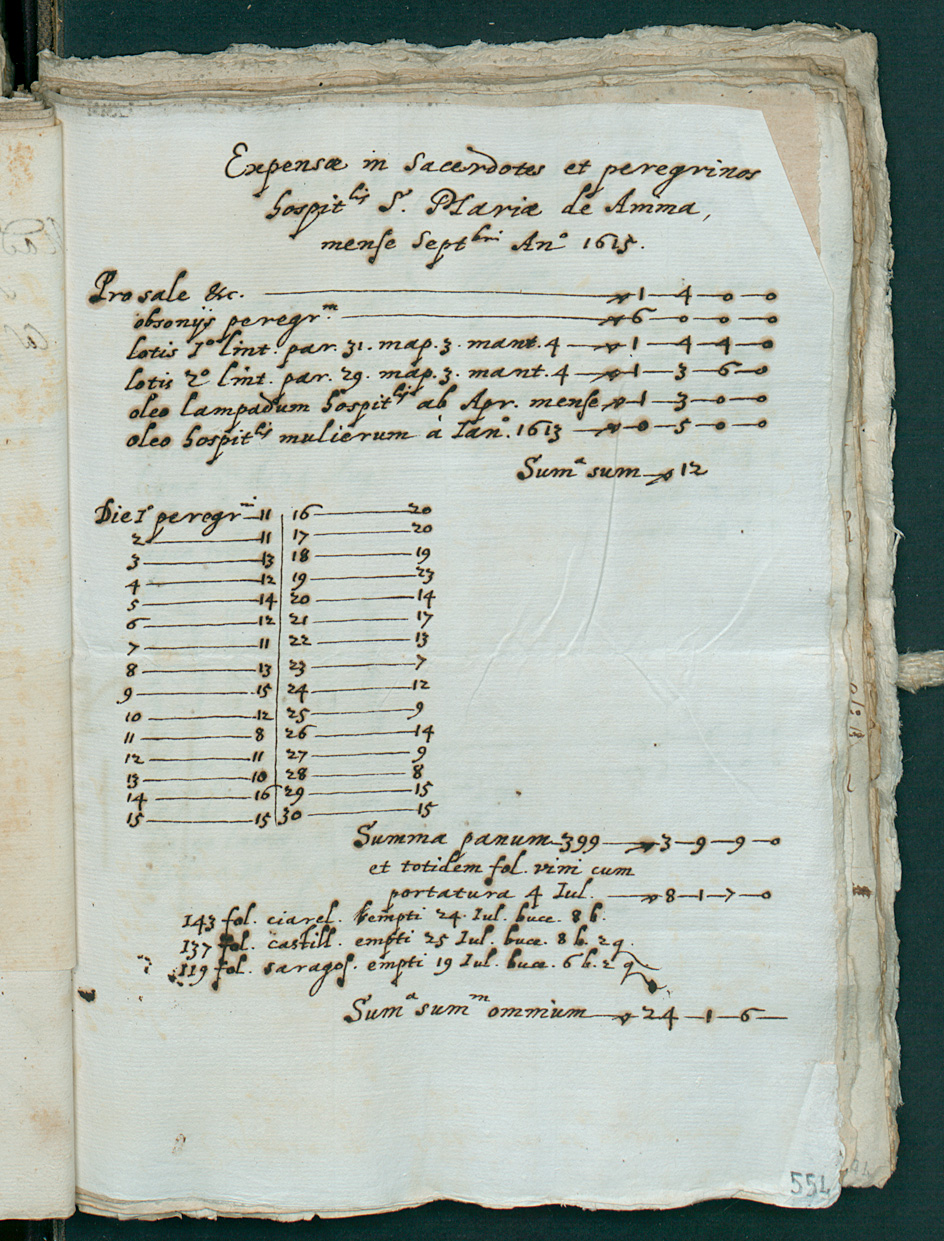 Expensæ in Sacerdotes et peregrinos
hospit^lis S. Mariæ de Amma,
mense Sept^bri An° 1615.
Pro sale &c. — 1 — 4 — 0 — 0
obsonijs peregr^m — 6 — 0 — 0 — 0
lotis 1° lint. par. 31. map. 3. mant. 4 — 1 — 4 — 4 — 0
lotis 2° lint. par. 29. map. 3. mant. 4 — 1 — 3 — 6 — 0
oleo lampadum hospit^lis ab Apr. mense — 1 — 3 — 0 — 0
oleo hospit^lis mulierum à Ian° 1613 — 0 — 5 — 0 — 0
Sum^a sum — 12
Die 1° peregr^ni — 11 | 16 — 20
2 — 11 | 17 — 20
3 — 13 | 18 — 19
4 — 12 | 19 — 23
5 — 14 | 20 — 14
6 — 12 | 21 — 17
7 — 11 | 22 — 13
8 — 13 | 23 — 7
9 — 15 | 24 — 12
10 — 12 | 25 — 9
11 — 8 | 26 — 14
12 — 11 | 27 — 9
13 — 10 | 28 — 8
14 — 16 | 29 — 15
15 — 15 | 30 — 15
Summa panum — 399 — 3 — 9 — 9 — 0
et totidem fol. vini cum
portatura 4 Iul. — 8 — 1 — 7 — 0
143 fol. ciarel. empti 24 Iul. buce. 8 b.
137 fol. castill. empti 25 Iul. buce. 8 b. 2 q.
119 fol. saragos. empti 19 Iul. buce. 6 b. 2 q.
Sum^a sum^m omnium — 24 — 1 — 6 —
551